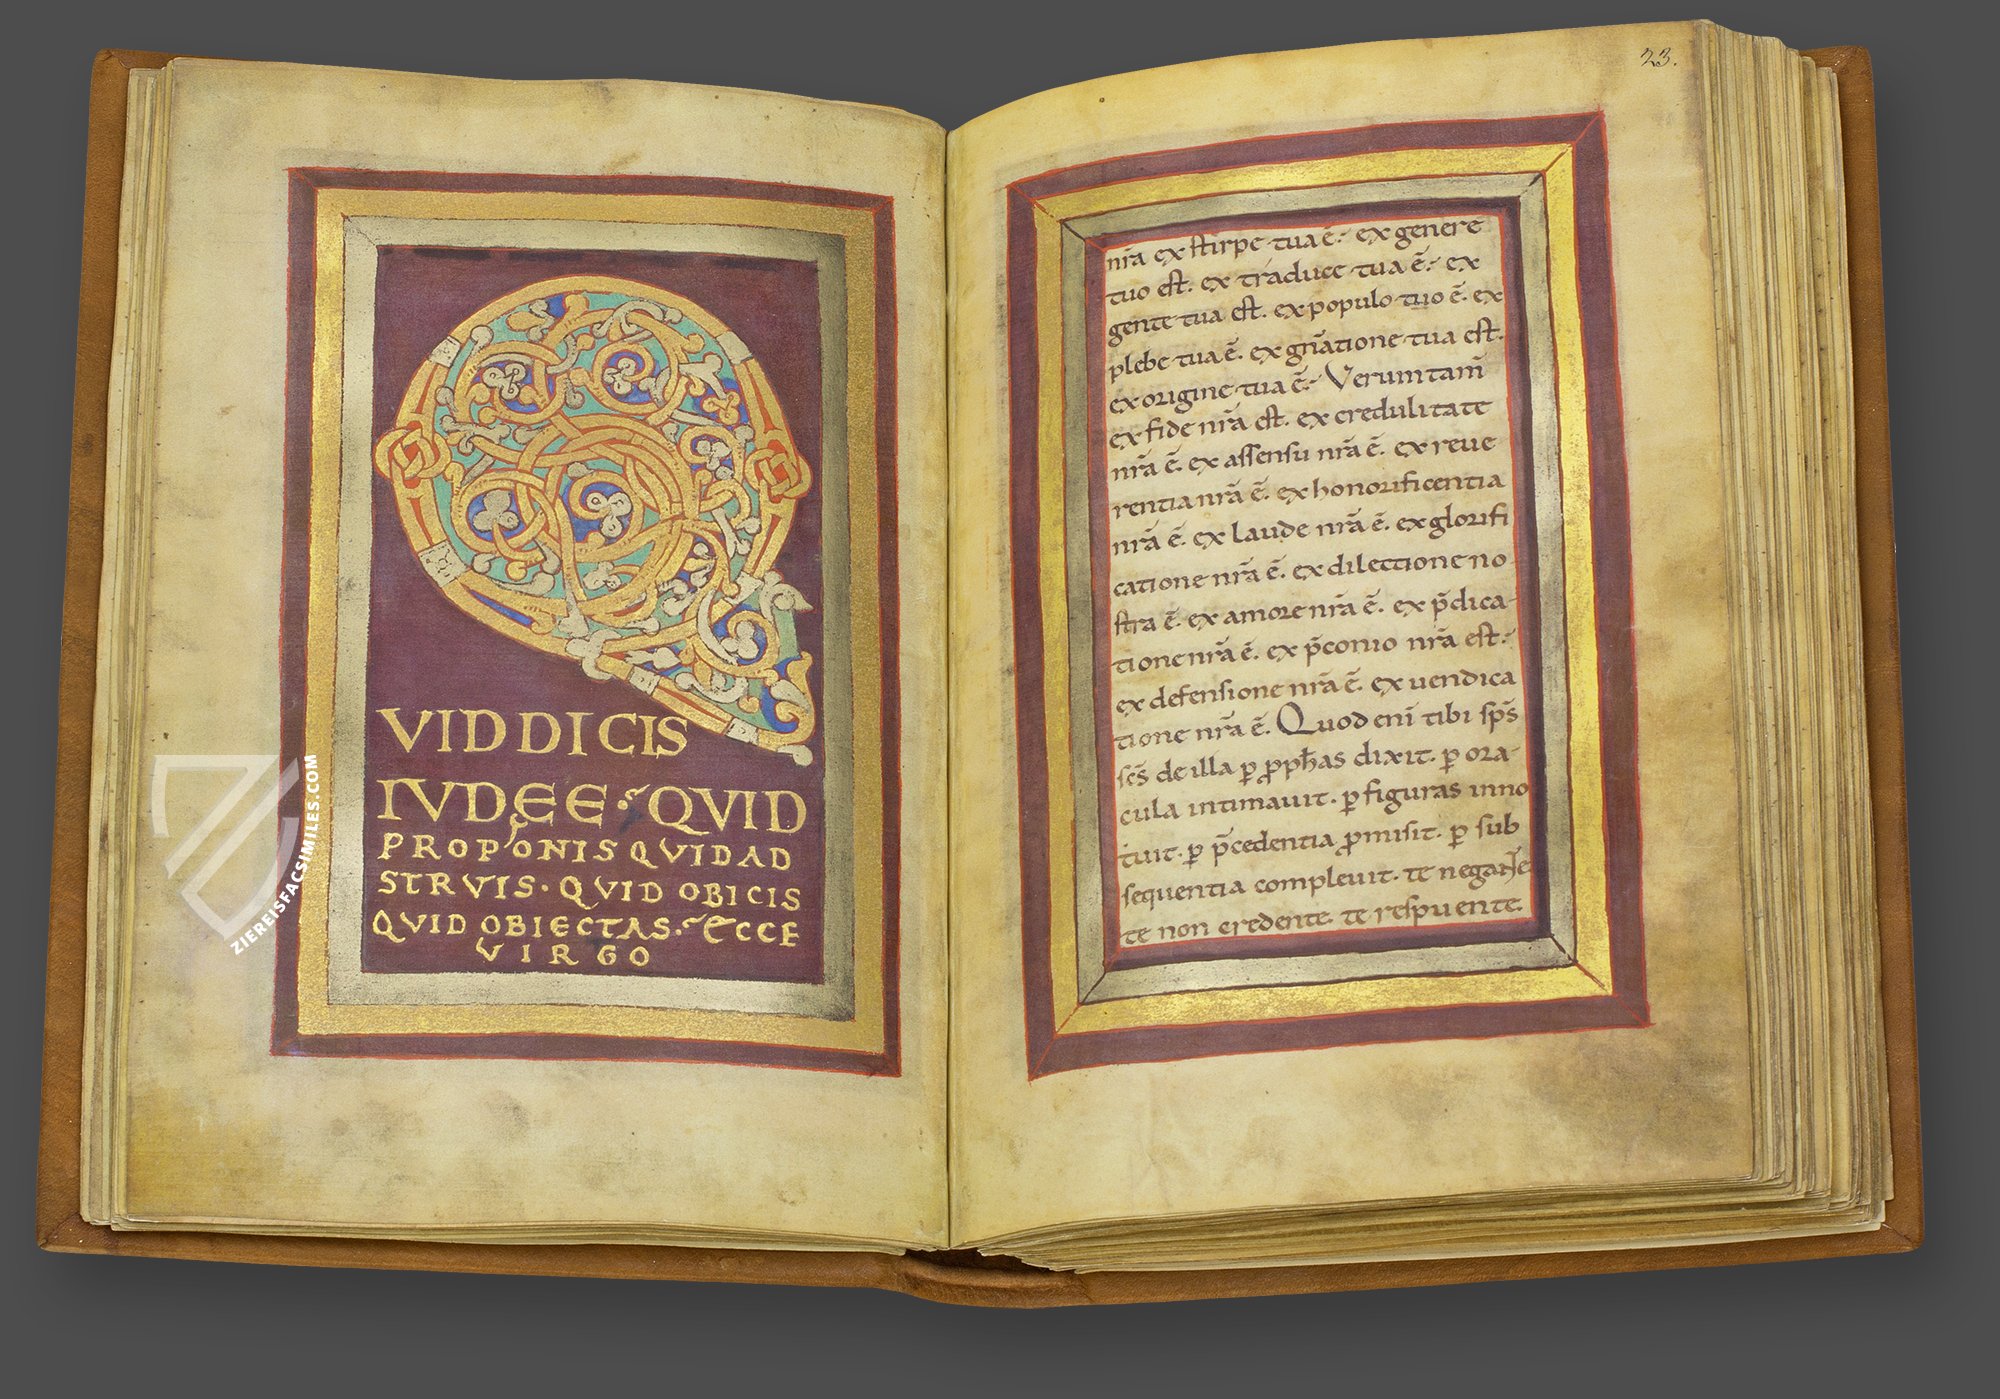 QVID DICIS
IVDĘE·QVID
PROPONIS QVID AD
STRVIS·QVID OBICIS
QVID OBIECTAS·ECCE
VIRGO
23.
nr̄a ex stirpe tua ē· ex genere
tuo est· ex traduce tua ē· ex
gente tua est· ex populo tuo ē· ex
plebe tua ē· ex gnatione tua est·
ex origine tua ē· Verumtam̄
ex fide nr̄a est· ex credulitate
nr̄a ē· ex assensu nr̄a ē· ex reue
rentia nr̄a ē· ex honorificentia
nr̄a ē· ex laude nr̄a ē· ex glorifi
catione nr̄a ē· ex dilectione no
stra ē· ex amore nr̄a ē· ex p̄dica-
tione nr̄a ē· ex p̄conio nr̄a est·
ex defensione nr̄a ē· ex uendica
tione nr̄a ē· Quod eni tibi sp̄s
sc̄s de illa ꝑ ꝓph̄as dixit· ꝑ ora-
cula intimauit· ꝑ figuras inno
tuit· ꝑ p̄cedentia ꝓmisit· ꝑ sub
sequentia compleuit· te negante
te non credente· te respuente·
ZIEREISFACSIMILES.COM